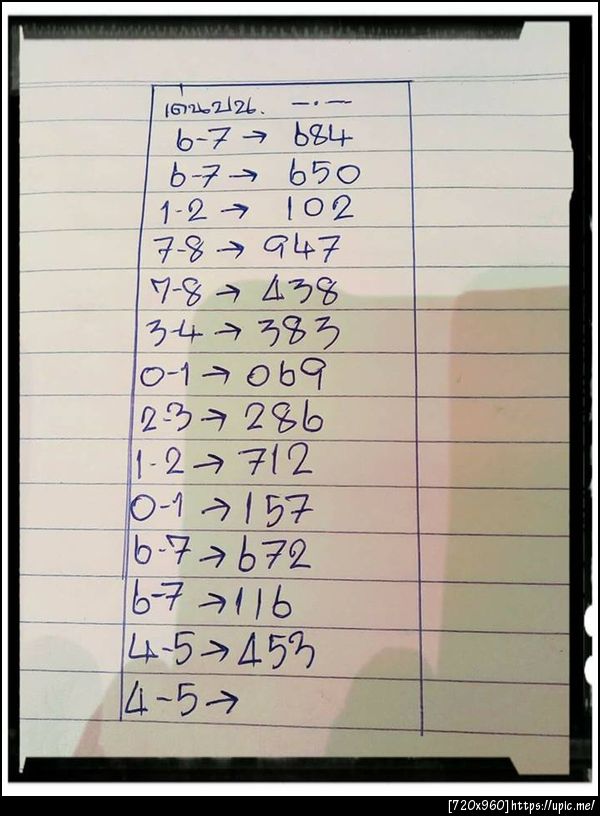 เด่นบน. —.—
6-7 → 684
6-7 → 650
1-2 → 102
7-8 → 947
7-8 → 438
3-4 → 383
0-1 → 069
2-3 → 286
1-2 → 712
0-1 → 157
6-7 → 672
6-7 → 116
4-5 → 453
4-5 →
[720x960]https://upic.me/